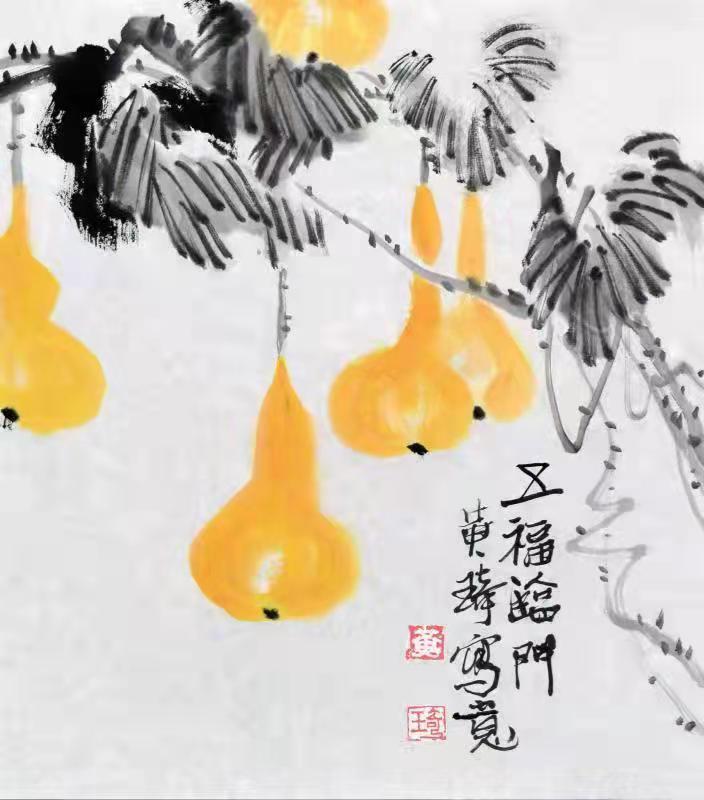 五福臨門
黄琦寫意
黄
琦